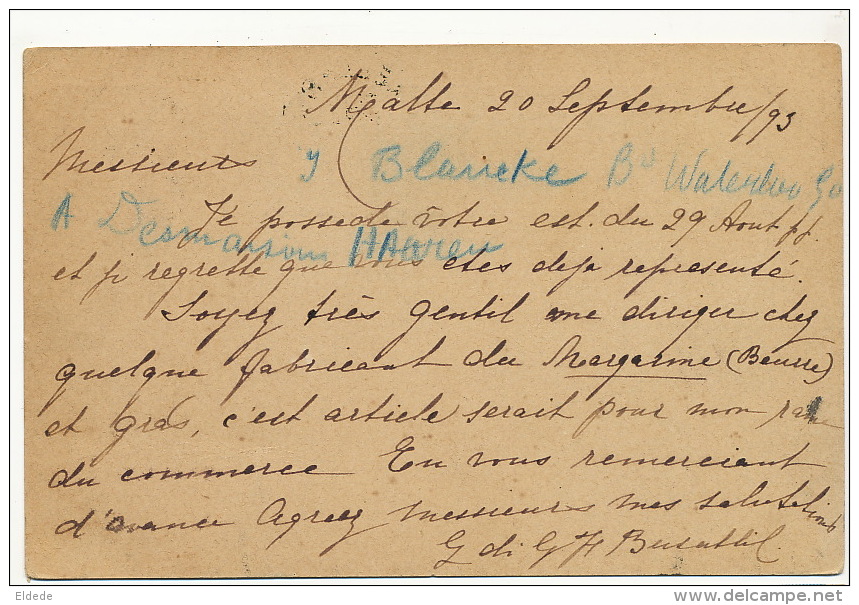 Malte 20 Septembre/93
Messieurs
y Blancke Bd Waterloo
A Desmaisons HAAren
Je possede vôtre est. du 29 Aout pp.
et je regrette que vous etes deja representé.
Soyez très gentil me diriger chez
quelque fabricant du Margarine (Beurre)
et gras, c'est article serait pour mon
du commerce En vous remerciant
d'avance Agreez messieurs mes salutations
G di G
Eldede
www.delcampe.net